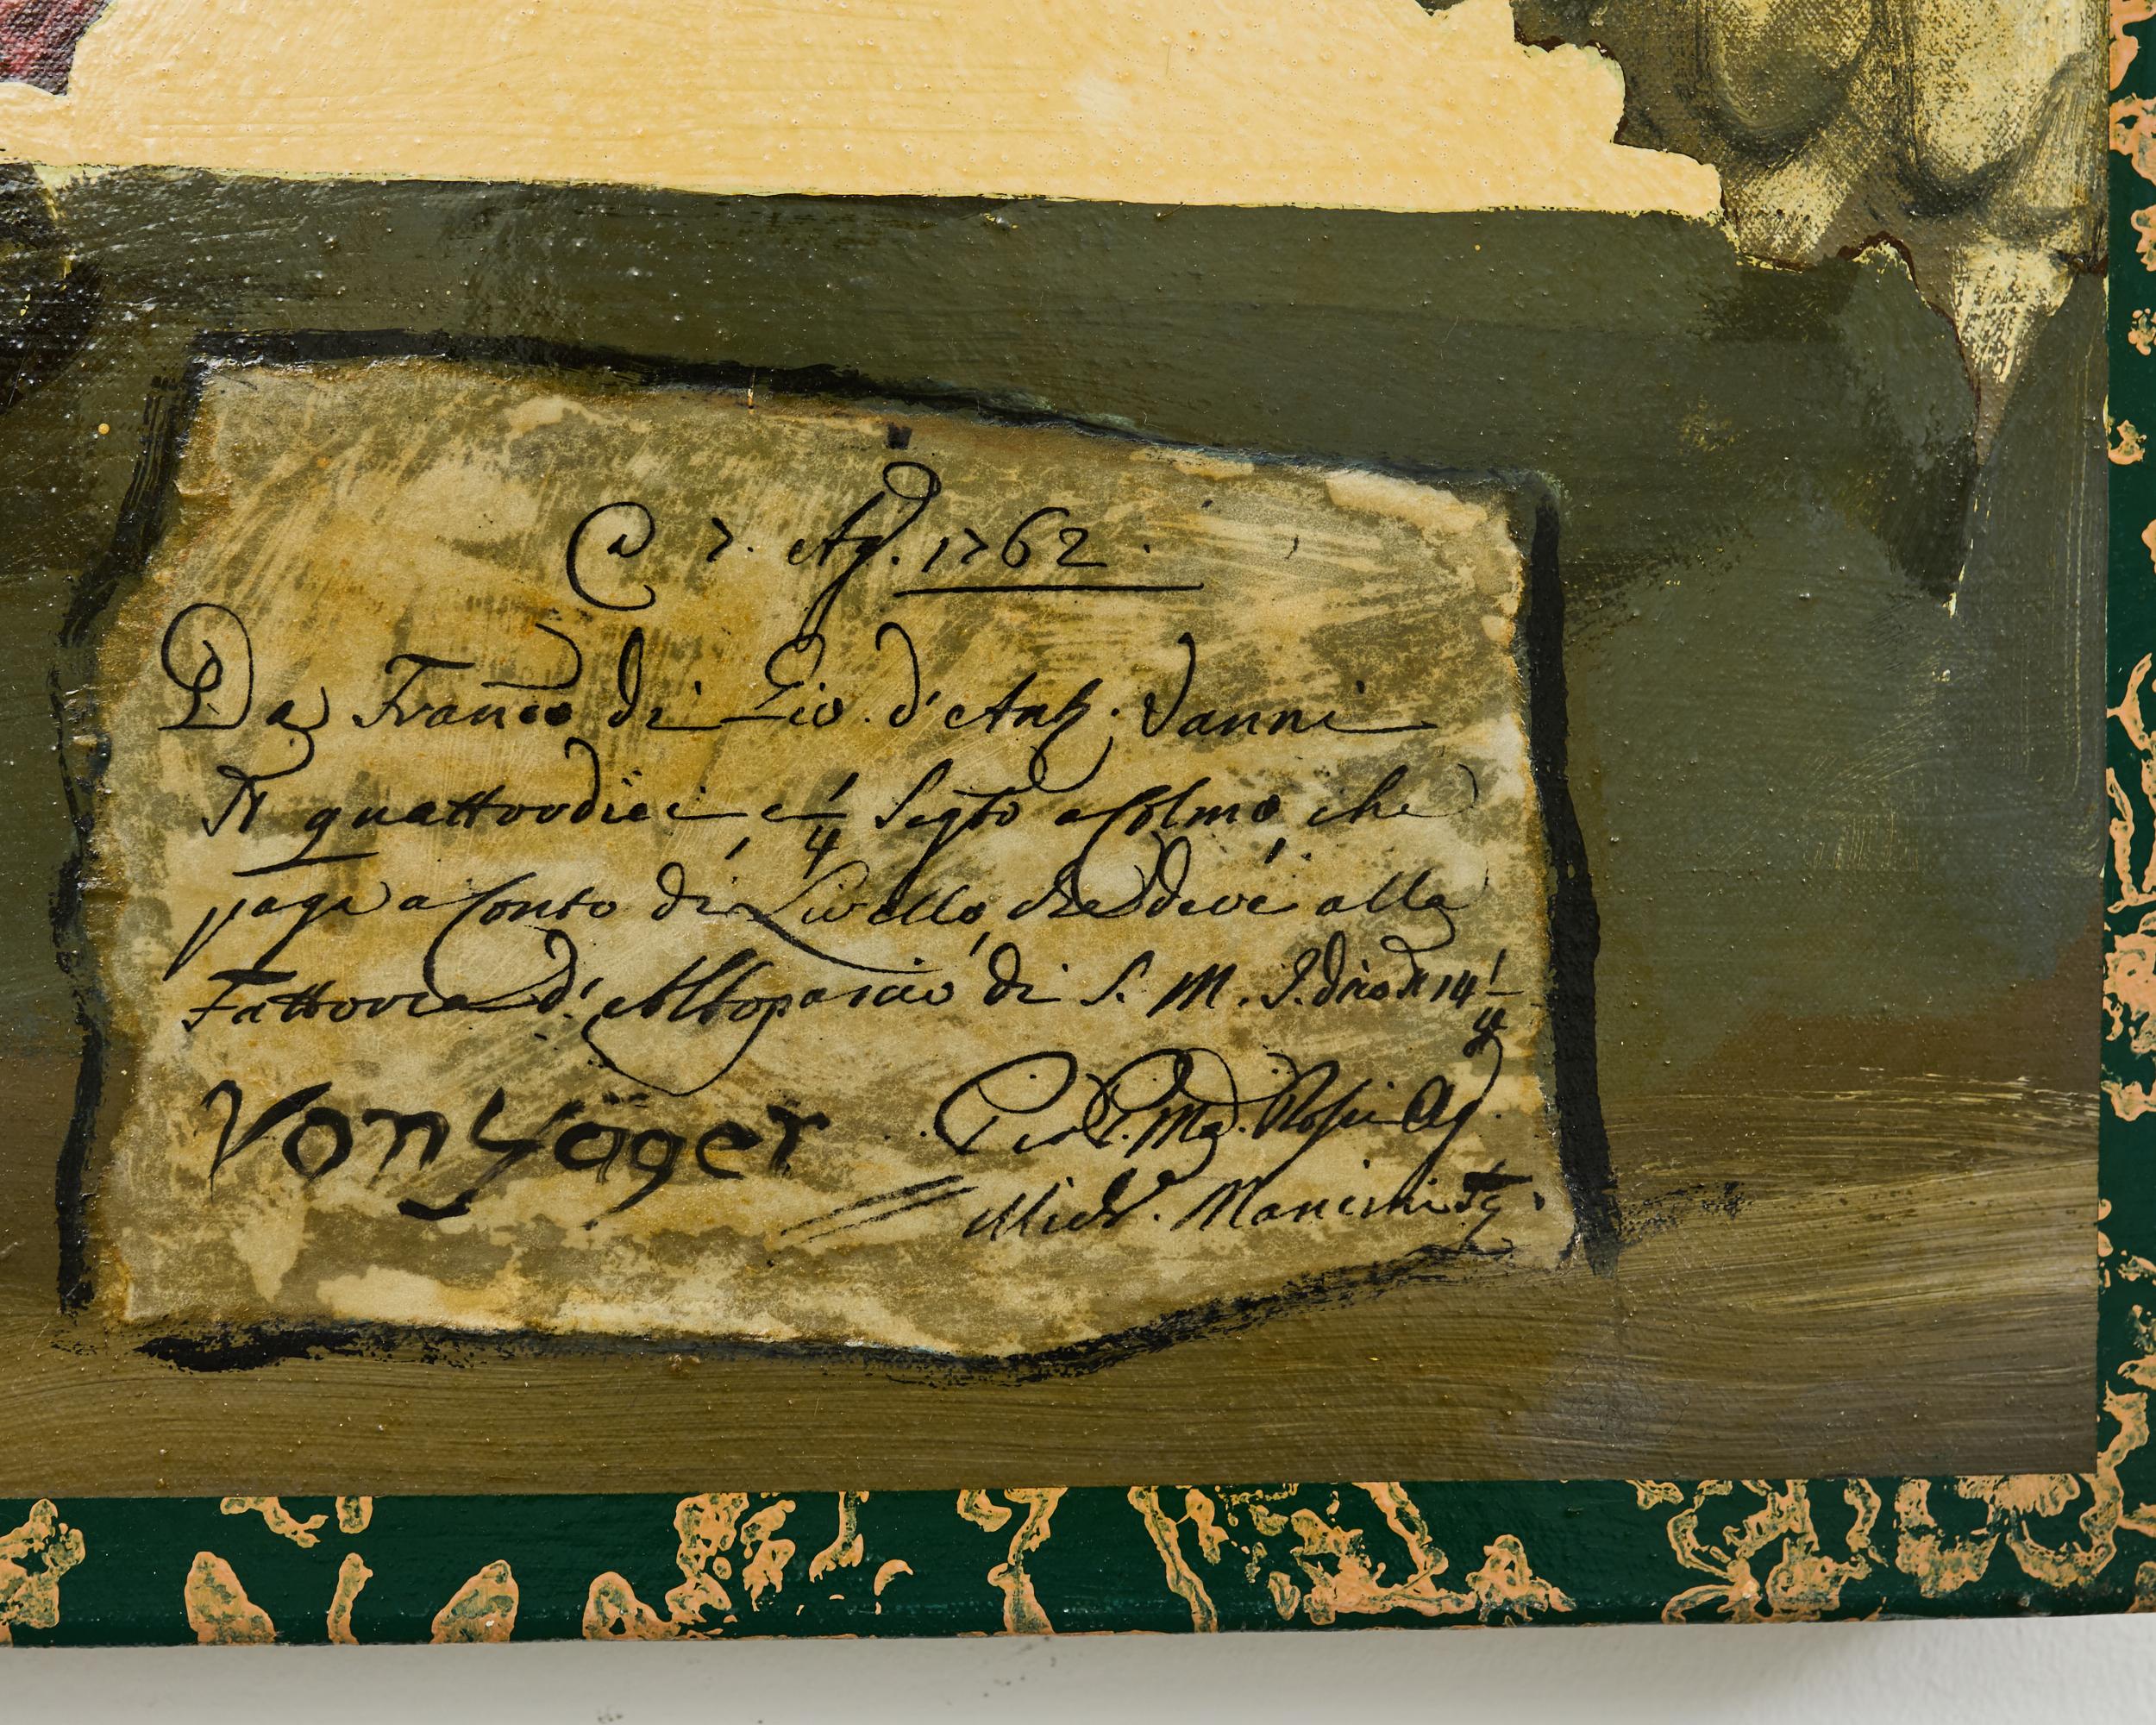 A 7. Ag. 1762.
Da Franco di Gio. d'Ant. Vanni
quattordici e 1/4 a Colmo che
paga a Conto di Livello che deve alla
Fattoria d'Altopascio di S. M. I. 14 1/4
Von Yäger
Pio Rossi Ag.
Mancini